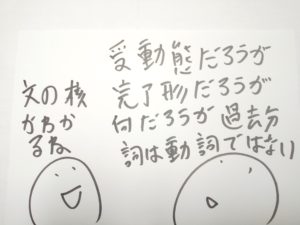 受動態だろうが
完了形だろうが
何だろうが過去分
詞は動詞ではない
文の核
がわか
るね